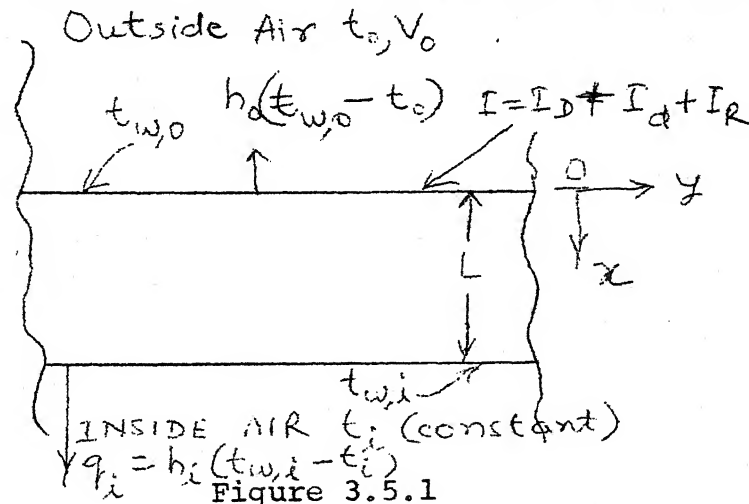 Outside Air t₀, V₀
h₀(t_w,₀ - t₀) I = I_D + I_d + I_R
t_w,₀
0
y
L
x
t_w,i
INSIDE AIR t_i (constant)
q_i = h_i (t_w,i - t_i)
Figure 3.5.1